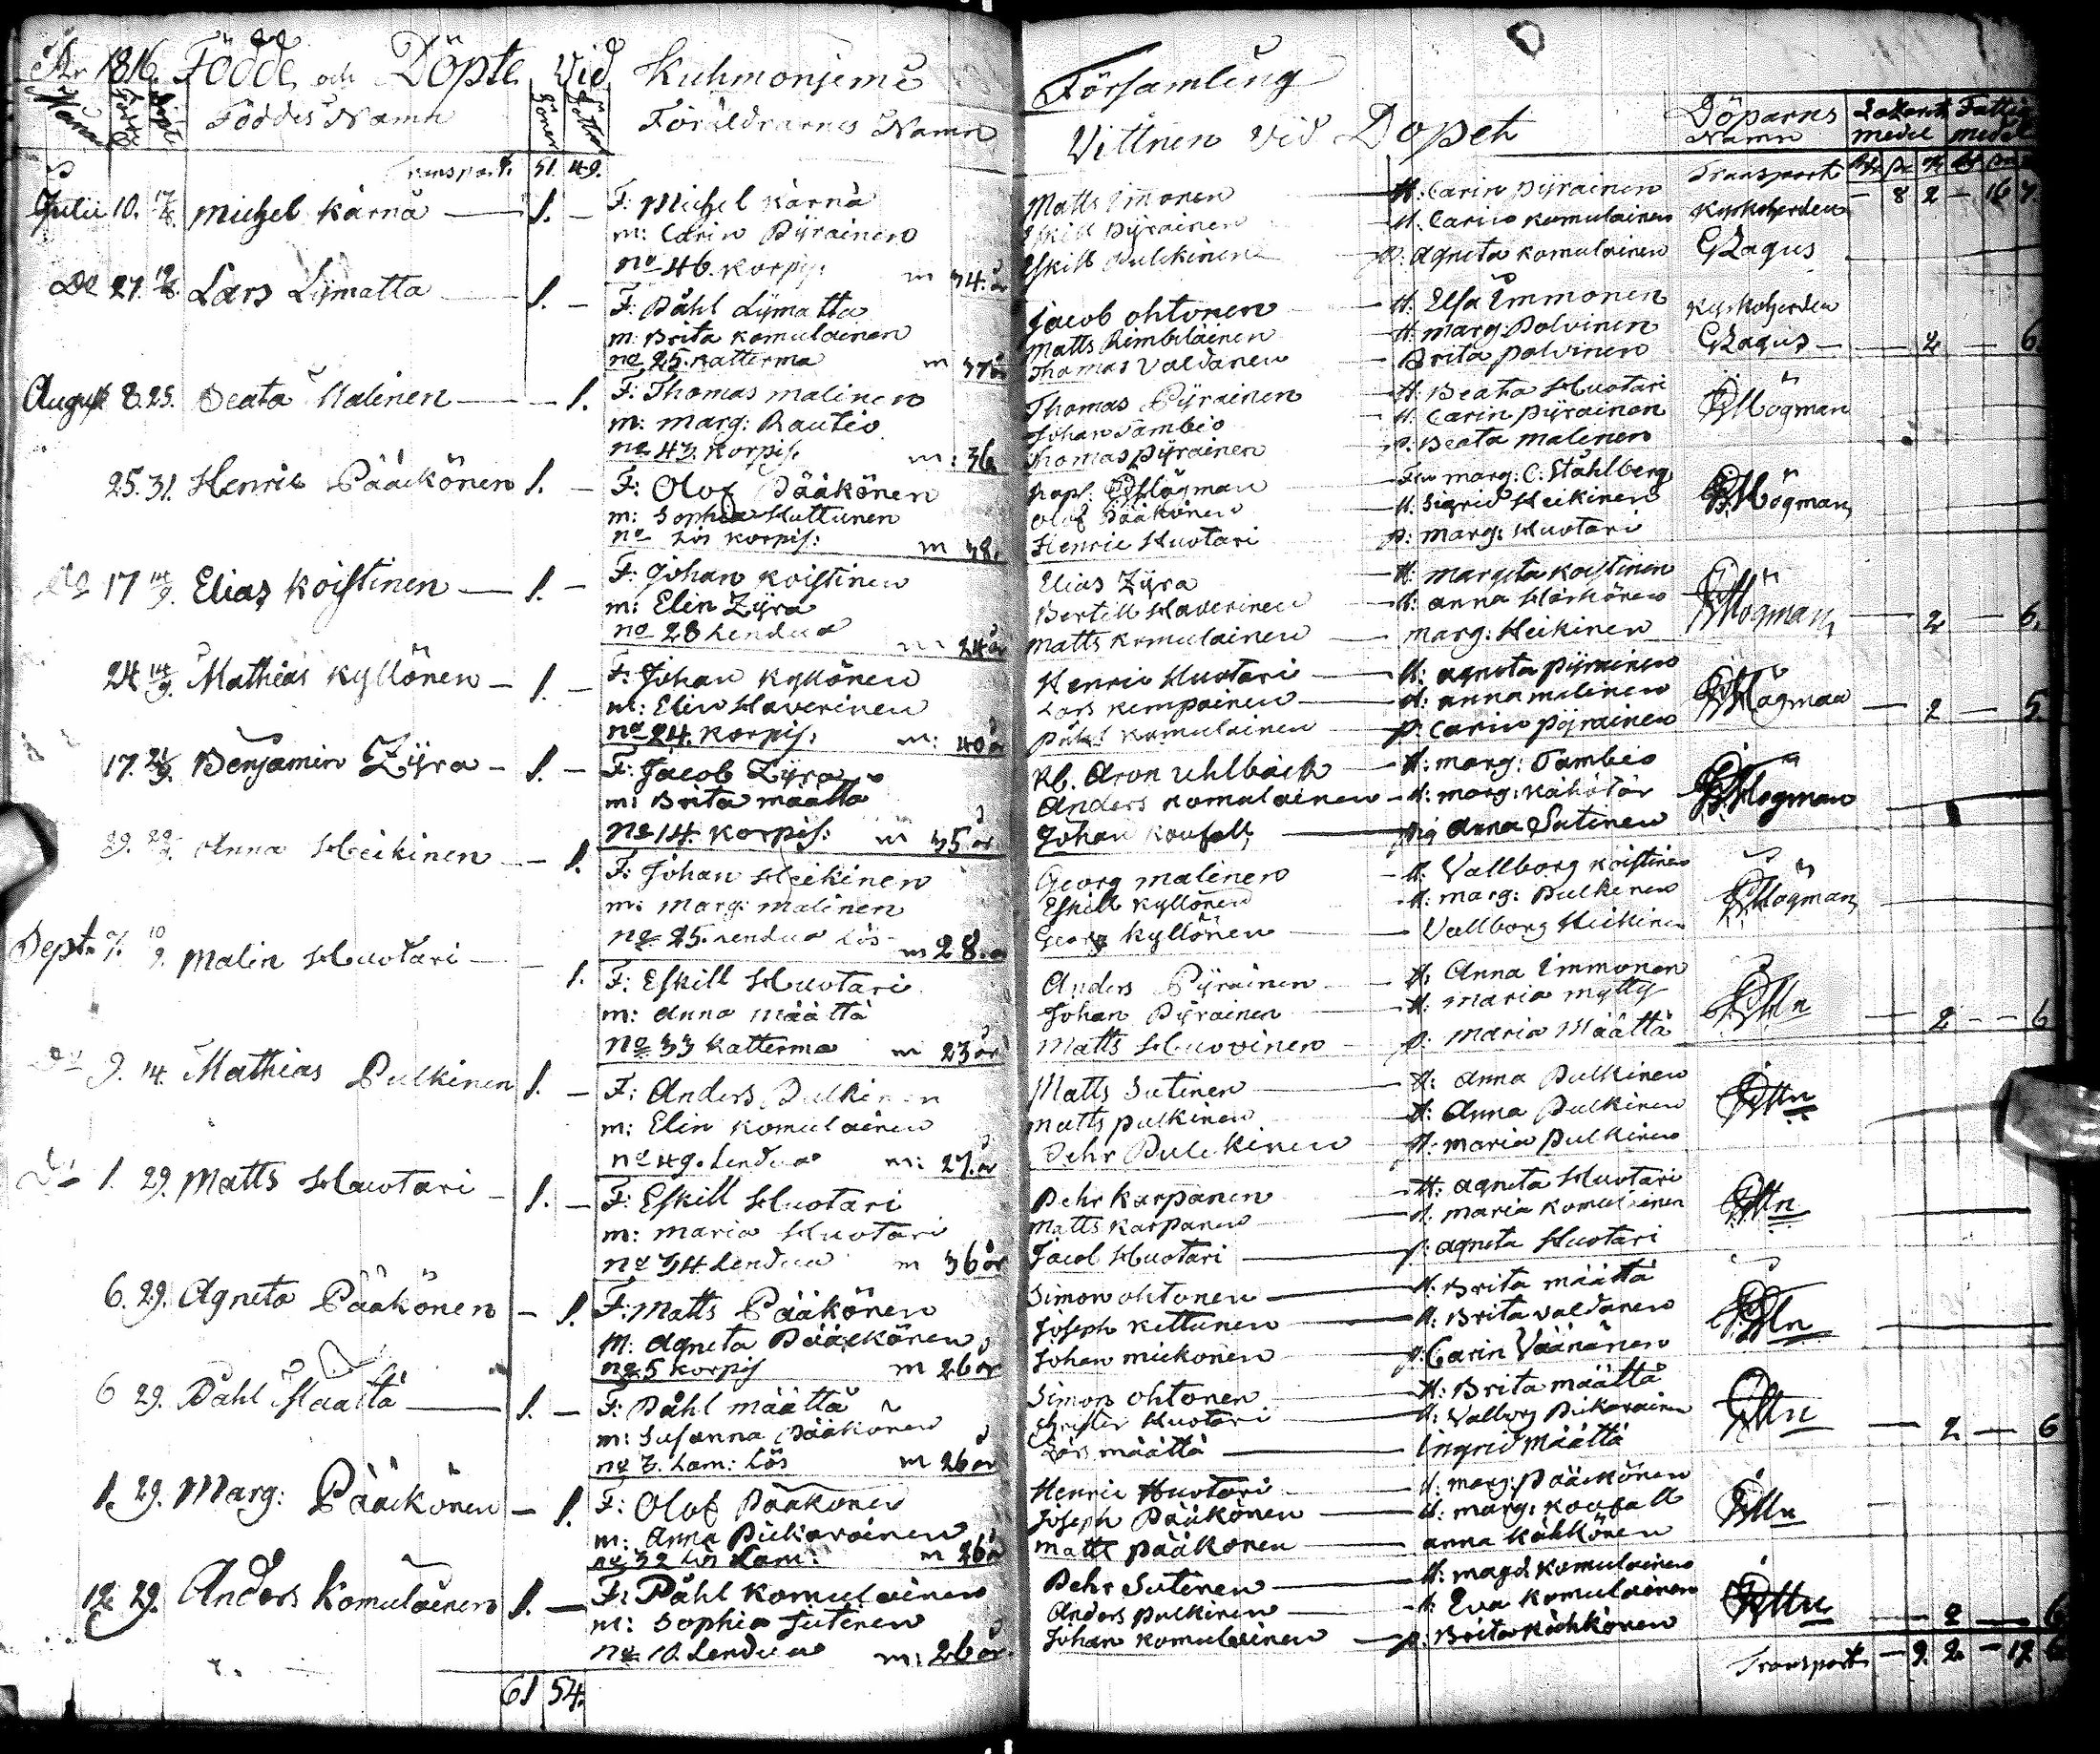 År 1816. Födde och Döpte Vid Kuhmoniemi Församling
Månad Födde Döpte Föddes Namn Söner Föräldrarnes Namn Vittnen vid Dopet Döparns Namn
Transport. 51. 49. Transport - 8 2 - 16 7.
Julii 10. Michel Kärnä 1. - F: Michel Kärnä Matts Immonen H: Carin Pyräinen Kyrkoherden
m: Carin Pyräinen Eskill Pyräinen H: Carin Komulainen
No 46. Korpis: m 34. år Eskill Pulckinen p: Agneta Komulainen Cajagus
Do 27. Lars Lymatta 1. - F: Påhl Lymatta Jacob Ohtonen H: Elsa Immonen Kyrkoherden
m: Brita Komulainen Matts H: Marg: Polvinen
No 25. Katterma m 37 år Thomas Valdanen Brita Polvinen - 2 - 6.
August 8. 25. Beata Malinen - 1. F: Thomas Malinen Thomas Pyräinen H: Beata Huotari Högman
m: Marg: Rautio Johan Tambio H: Carin Pyräinen
No 43. Korpis. m: 36 Thomas Pyräinen p. Beata Malinen
25. 31. Henric Pääkönen 1. - F: Olof Pääkönen Högman Fru Marg: C: Ståhlberg Högman
m: Sophia Huttunen Olof Pääkönen H: Sigrid Heikinen
No Lös Korpis: m 38. Henric Huotari p: Marg: Huotari
Do 17 14/9. Elias Koistinen 1. - F: Johan Koistinen Elias Zyra H: Margeta Koistinen Högman
m: Elin Zyra Bertill Haverinen H: Anna Härkönen
No 28 Lendua m 24 år Matts Komulainen Marg: Heikinen - 2 - 6.
24 14/9. Mathias Kyllönen 1. - F: Johan Kyllönen Henric Huotari H: Agneta Pyräinen Högman
m: Elin Haverinen Lars Kempainen H: Anna Malinen
No 24. Korpis: m: 40 år Påhl Komulainen p. Carin Pyräinen - 2 - 5.
17. 21/9. Benjamin Zyra 1. - F: Jacob Zyra Kb. Aron Uhlbäck H: Marg: Tambio Högman
m: Brita Määttä Anders Komulainen H: Marg:
No 14. Korpis: m 35 år Johan pig Anna Sutinen
29. Anna Heikinen - 1. F: Johan Heikinen Georg Malinen H: Vallborg Koistinen Högman
m: Marg: Malinen Eskill Kyllönen H: Marg: Pulkinen
No 25. Lendua Lös m 28. Georg Kyllönen Vallborg Heikinen
Septr 7. 10/9. Malin Huotari - 1. F: Eskill Huotari Anders Pyräinen H: Anna Immonen
m: Anna Määttä Johan Pyräinen H: Maria Mytty
No 33 Katterma m 23 år Matts Huovinen p: Maria Määttä - 2 - 6
Do 9. 14. Mathias Pulkinen 1. - F: Anders Pulkinen Matts Sutinen H: Anna Pulkinen
m: Elin Komulainen Matts Pulkinen H: Anna Pulkinen
No 49. Lendua m: 27. år Pehr Pulckinen p: Maria Pulkinen
Do 1. 29. Matts Huotari 1. - F: Eskill Huotari Pehr Karpanen H: Agneta Huotari
m: Maria Huotari Matts Karpanen H. Maria Komulainen
No 34 Lendua m 36 år Jacob Huotari p: Agneta Huotari
6. 29. Agneta Pääkönen - 1. F: Matts Pääkönen Simon Ohtonen H: Brita Määttä
M: Agneta Pääckönen Joseph Kettunen H: Brita Valdanen
No 5 Korpis m 26 år Johan Mickonen p: Carin Väänänen
6 29. Påhl Määttä 1. - F: Påhl Määttä Simon Ohtonen H: Brita Määttä
m: Susanna Pääkönen Christer Huotari H: Vallborg Pickarainen
No 7. Lam: Lös m 26 år Lars Määttä Ingrid Määttä - 2 - 6
1. 29. Marg: Pääckönen - 1. F: Olof Pääkönen Henric Huotari H. Marg: Pääckönen
m: Anna Pickarainen Joseph Pääkönen H. Marg:
No 32 Lös Lam: m 26 år Matts Pääkönen Anna Kähkönen
12. 29. Anders Komulainen 1. - F: Påhl Komulainen Pehr Sutinen H: Magd: Komulainen
m: Sophia Sutinen Anders Pulkinen H: Eva Komulainen
No 10. Lendua m: 26 år. Johan Komulainen p. Brita Kähkönen - 2 - 6
61 54. Transport - 9. 2 - 17. 6